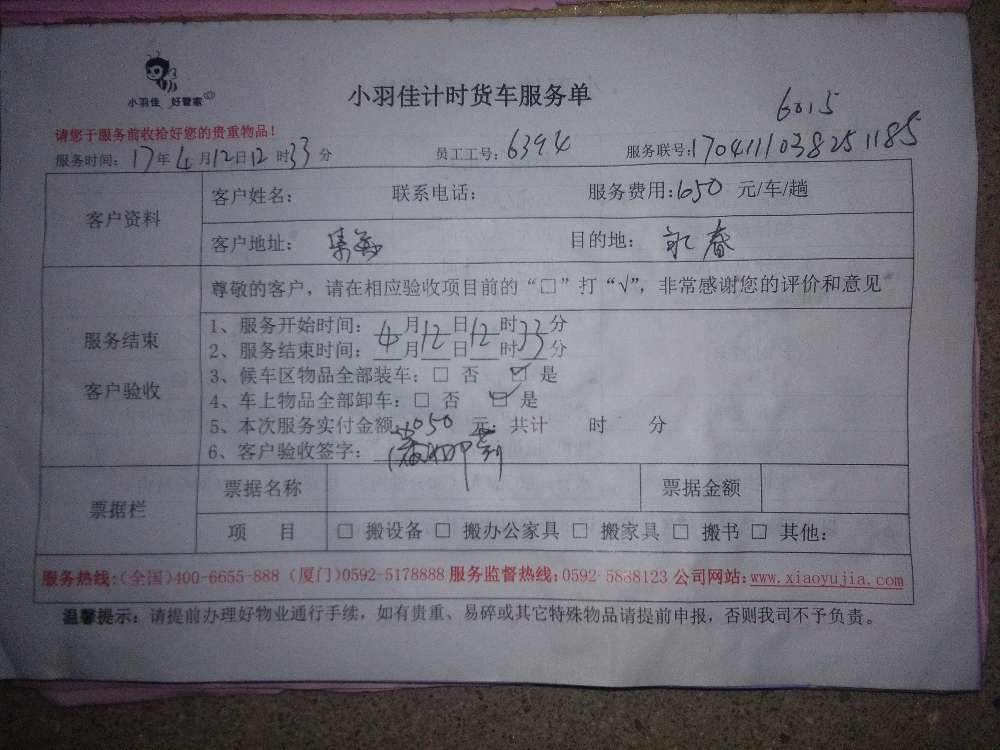 小羽佳 好管家
小羽佳计时货车服务单
6015
请您于服务前收拾好您的贵重物品！
服务时间：17年4月12日12时33分 员工工号：6394 服务联号：1704111038251185
客户资料
客户姓名： 联系电话： 服务费用：650 元/车/趟
客户地址：集美 目的地：永春
服务结束
客户验收
尊敬的客户，请在相应验收项目前的“□”打“√”，非常感谢您的评价和意见
1、服务开始时间：4月12日12时33分
2、服务结束时间： 月 日 时 分
3、候车区物品全部装车：□ 否 ☑ 是
4、车上物品全部卸车：□ 否 ☑ 是
5、本次服务实付金额：650 元；共计 时 分
6、客户验收签字：
票据栏
票据名称 票据金额
项 目 □ 搬设备 □ 搬办公家具 □ 搬家具 □ 搬书 □ 其他：
服务热线：（全国）400-6655-888（厦门）0592-5178888 服务监督热线：0592-5838123 公司网站：www.xiaoyujia.com
温馨提示：请提前办理好物业通行手续，如有贵重、易碎或其它特殊物品请提前申报，否则我司不予负责。